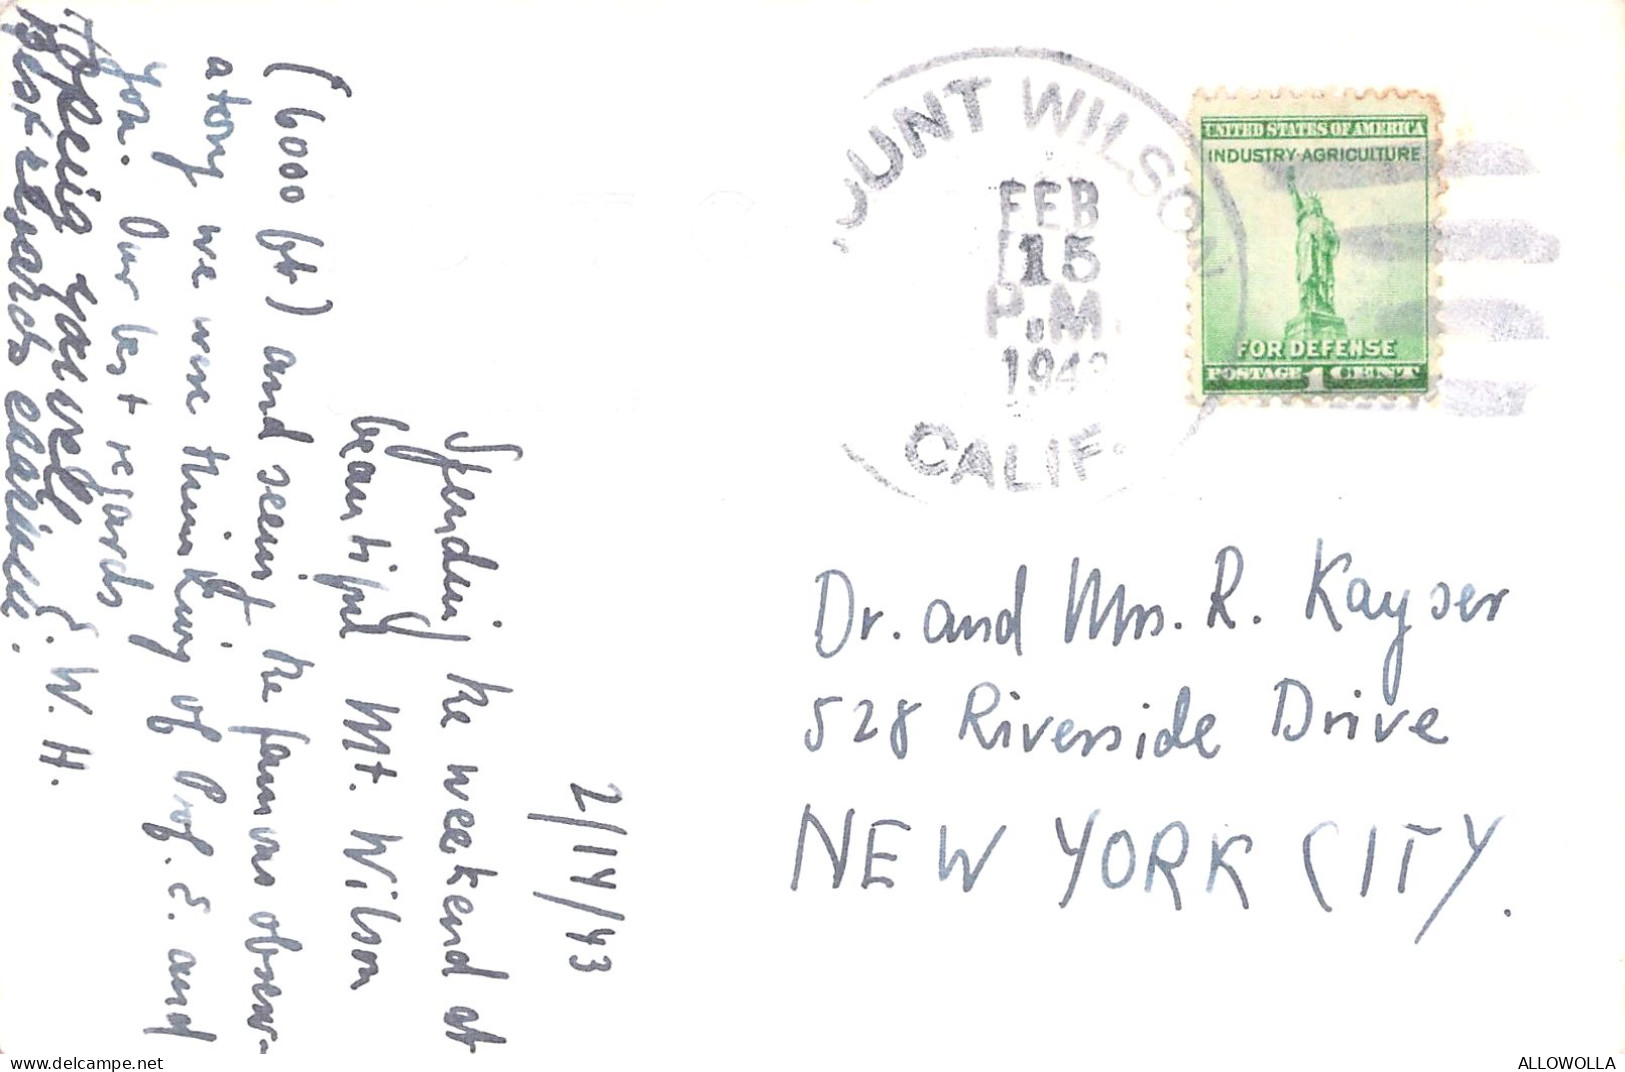 2/14/43
Spending the weekend at
beautiful Mt. Wilson
(6000 ft) and seeing the famous observ-
atory we were thinking of Prof. E. and
you. Our best regards
E. W. H.
Hoping you well
Best regards
MOUNT WILSON
FEB
15
P.M.
194
CALIF.
UNITED STATES OF AMERICA
INDUSTRY·AGRICULTURE
FOR DEFENSE
POSTAGE 1 CENT
Dr. and Mrs. R. Kayser
528 Riverside Drive
NEW YORK CITY.
the-card.com
ALLOWOLLA